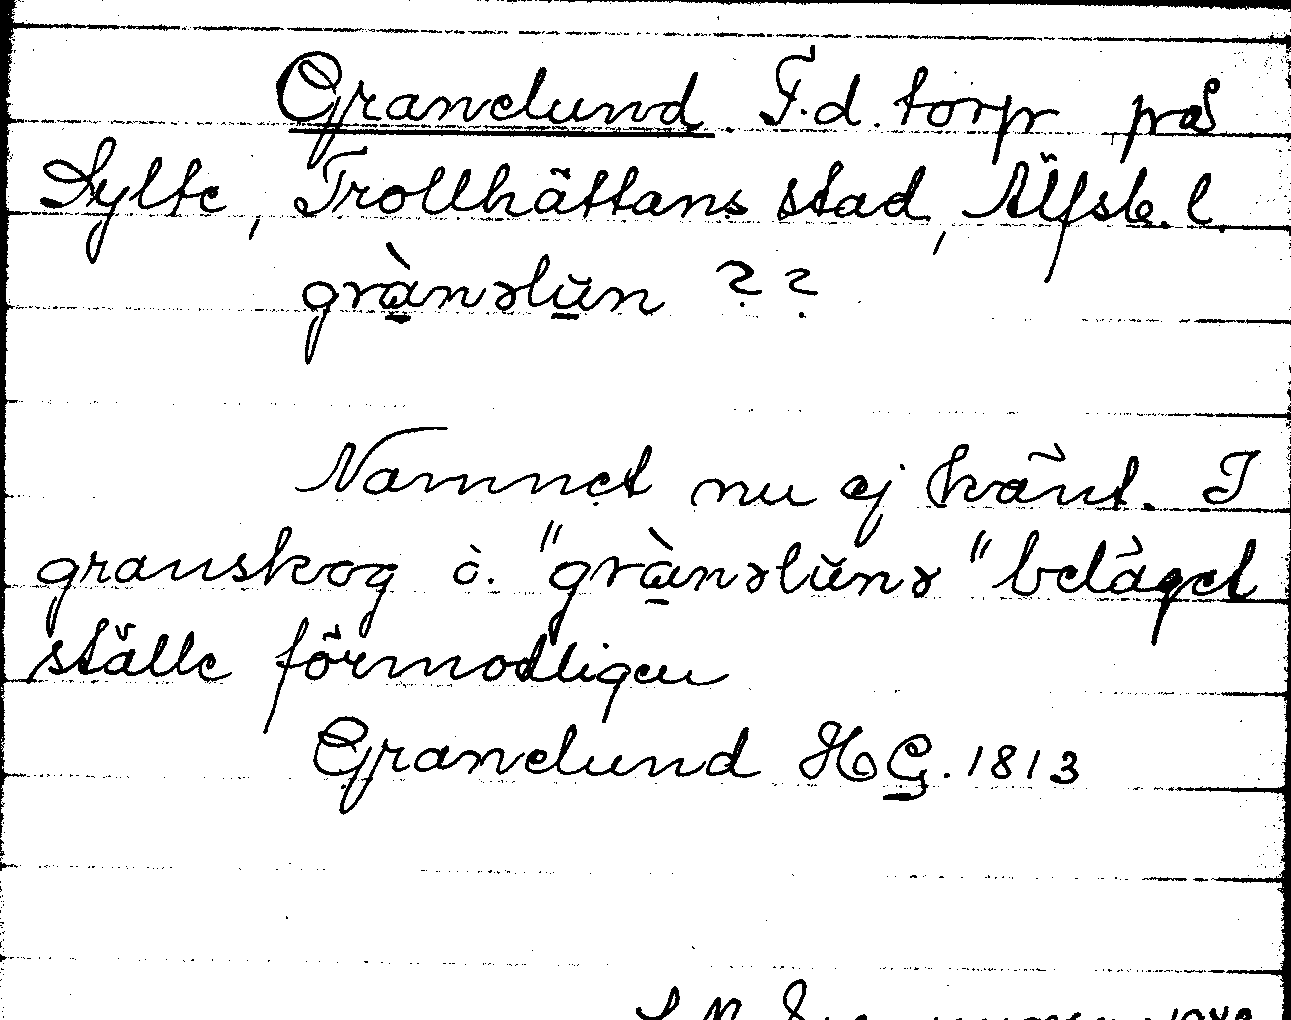 Granelund. F.d. torp på
Sylte, Trollhättans stad, Älfsb. l.
grànəlun ??
Namnet nu ej känt. I
granskog o. "grànəlunə" beläget
ställe förmodligen
Granelund HG. 1813